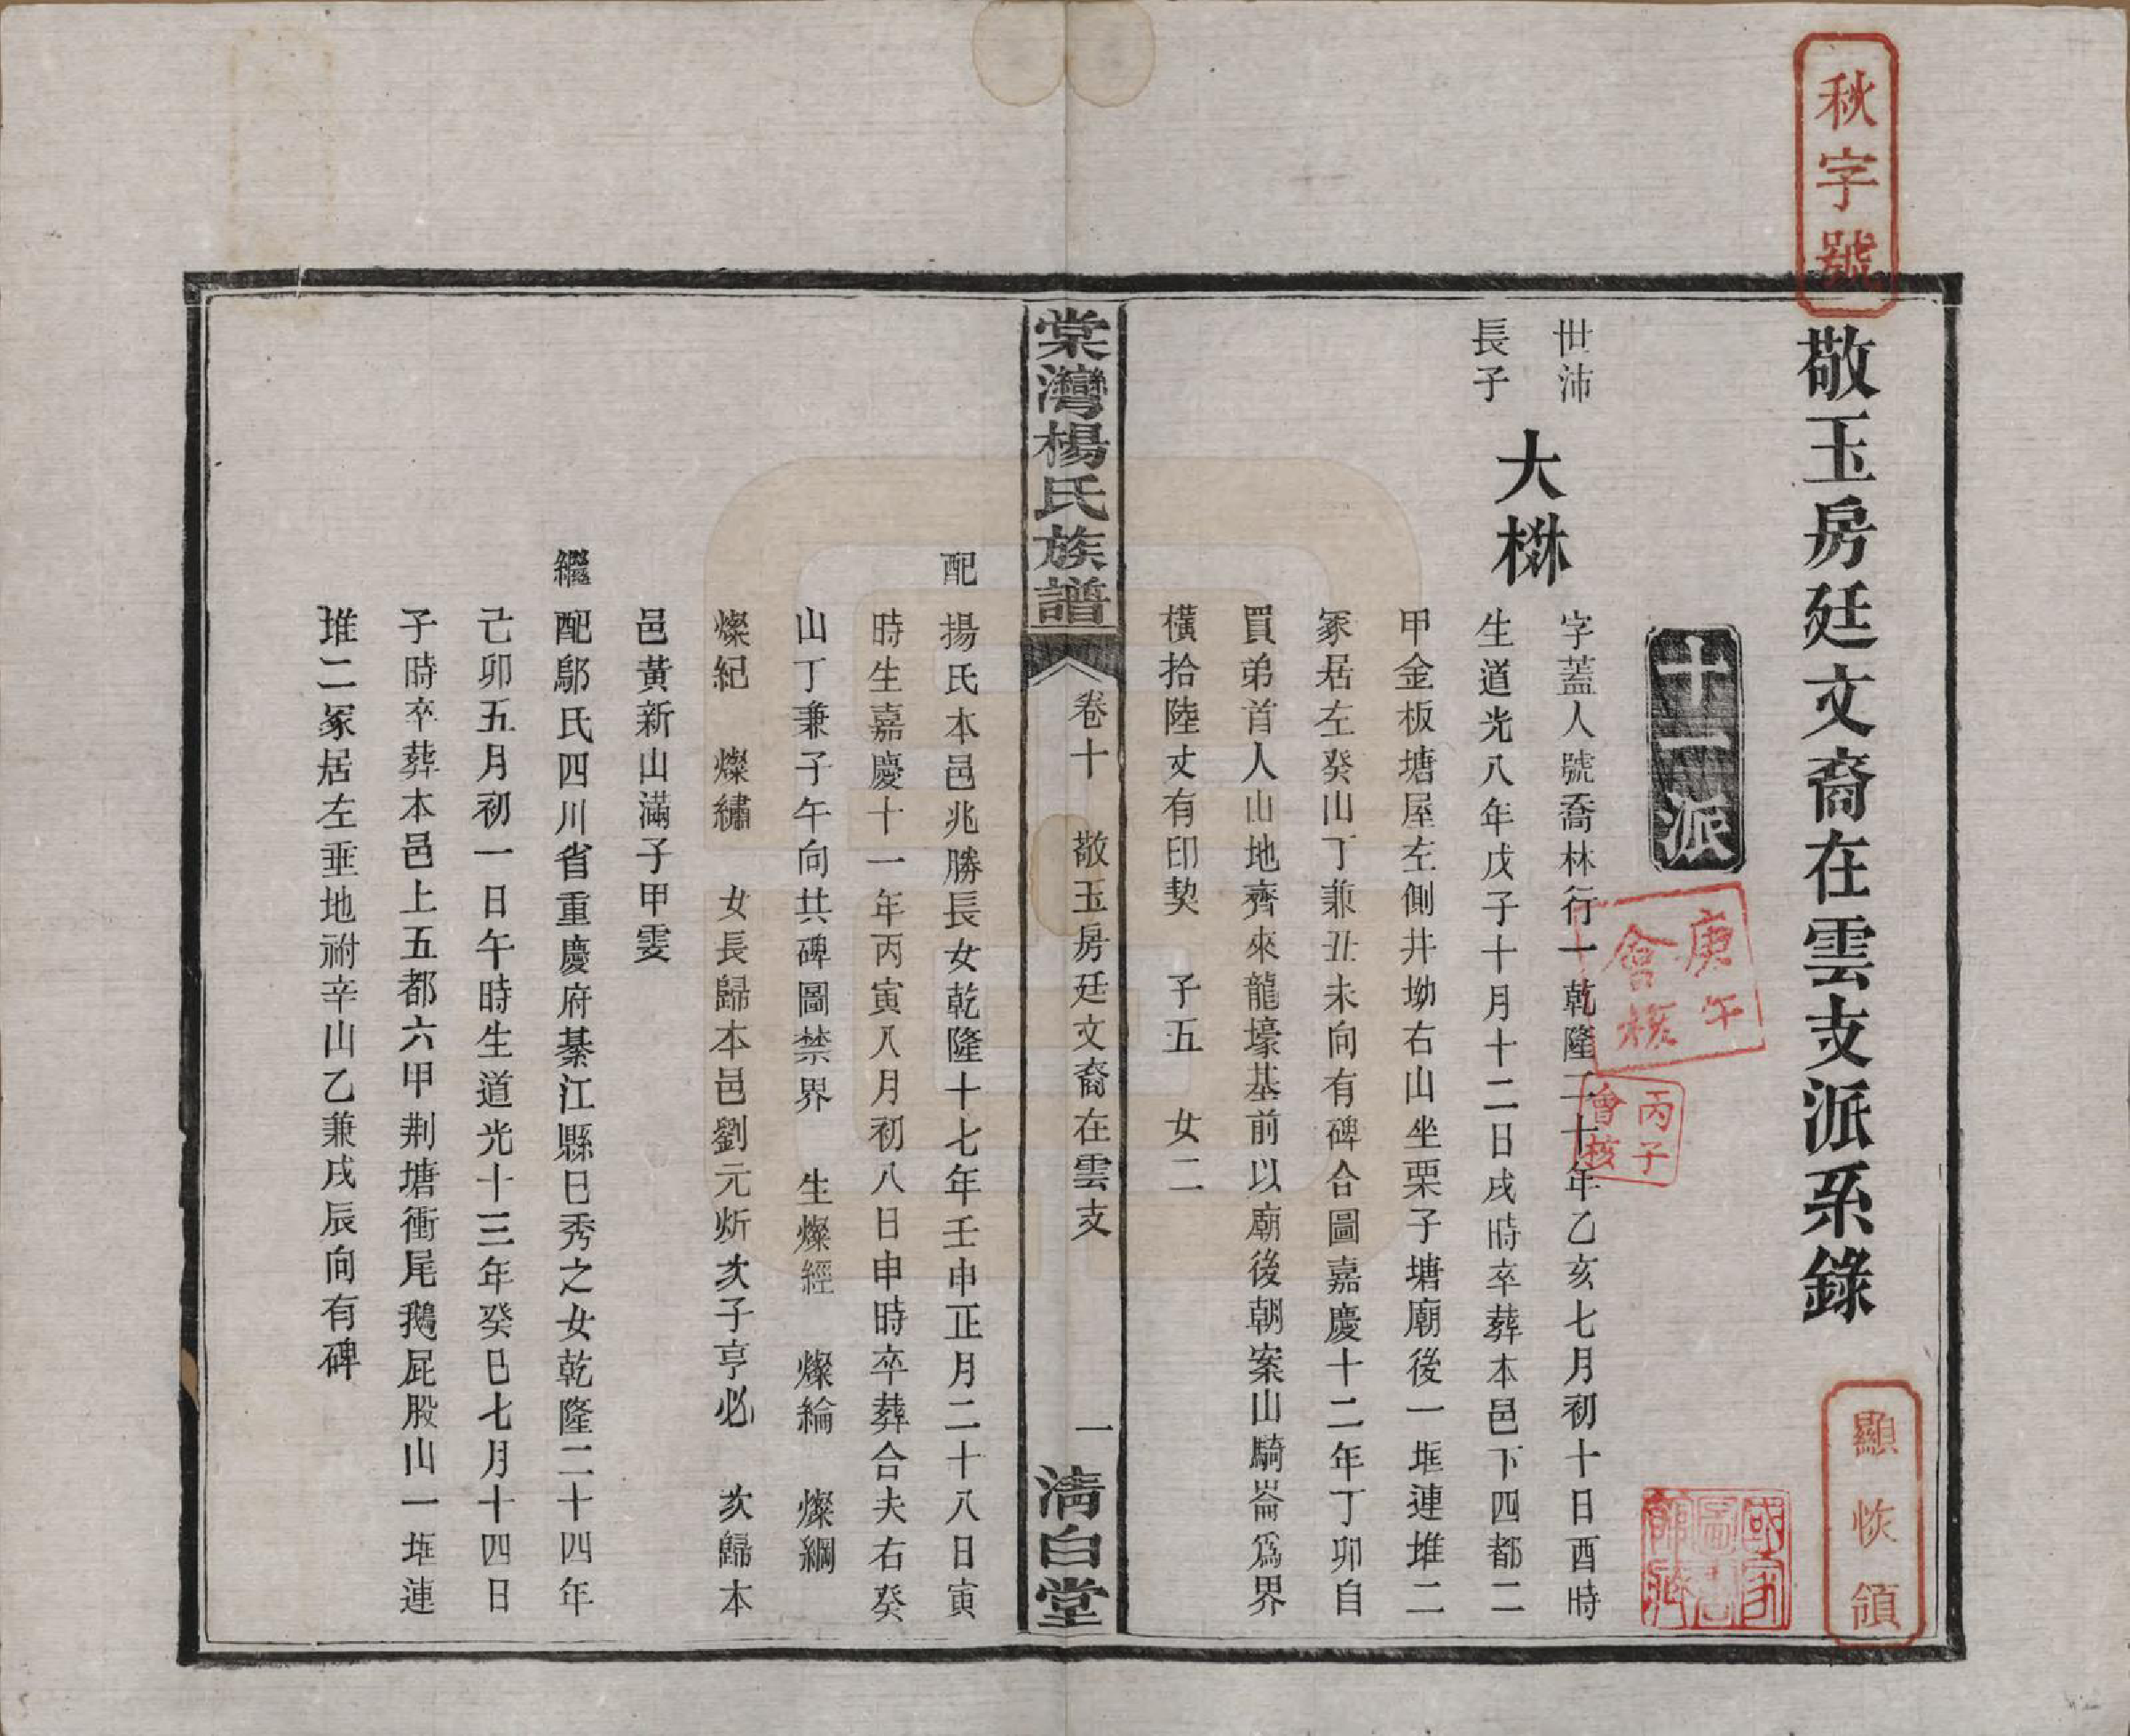 秋字號
敬玉房廷文裔在雲支派系錄
顯恢領
十一派
庚午會核
丙子會核
世沛
長子
大楙
字蓋人號喬林行一乾隆二十年乙亥七月初十日酉時
生道光八年戊子十月十二日戌時卒葬本邑下四都二
甲金板塘屋左側井坳右山坐栗子塘廟後一堆連堆二
冢居左癸山丁兼丑未向有碑合圖嘉慶十二年丁卯自
買弟首人山地齊來龍壕基前以廟後朝案山騎崙爲界
橫拾陸丈有印契 子五 女二
棠灣楊氏族譜 卷十 敬玉房廷文裔在雲支 一 清白堂
配 揚氏本邑兆勝長女乾隆十七年壬申正月二十八日寅
時生嘉慶十一年丙寅八月初八日申時卒葬合夫右癸
山丁兼子午向共碑圖禁界 生燦經 燦綸 燦綱
燦紀 燦繡 女長歸本邑劉元炘次子亨必 次歸本
邑黃新山滿子甲雯
繼配鄔氏四川省重慶府綦江縣巳秀之女乾隆二十四年
己卯五月初一日午時生道光十三年癸巳七月十四日
子時卒葬本邑上五都六甲荆塘衝尾鵝屁股山一堆連
堆二冢居左垂地祔辛山乙兼戌辰向有碑